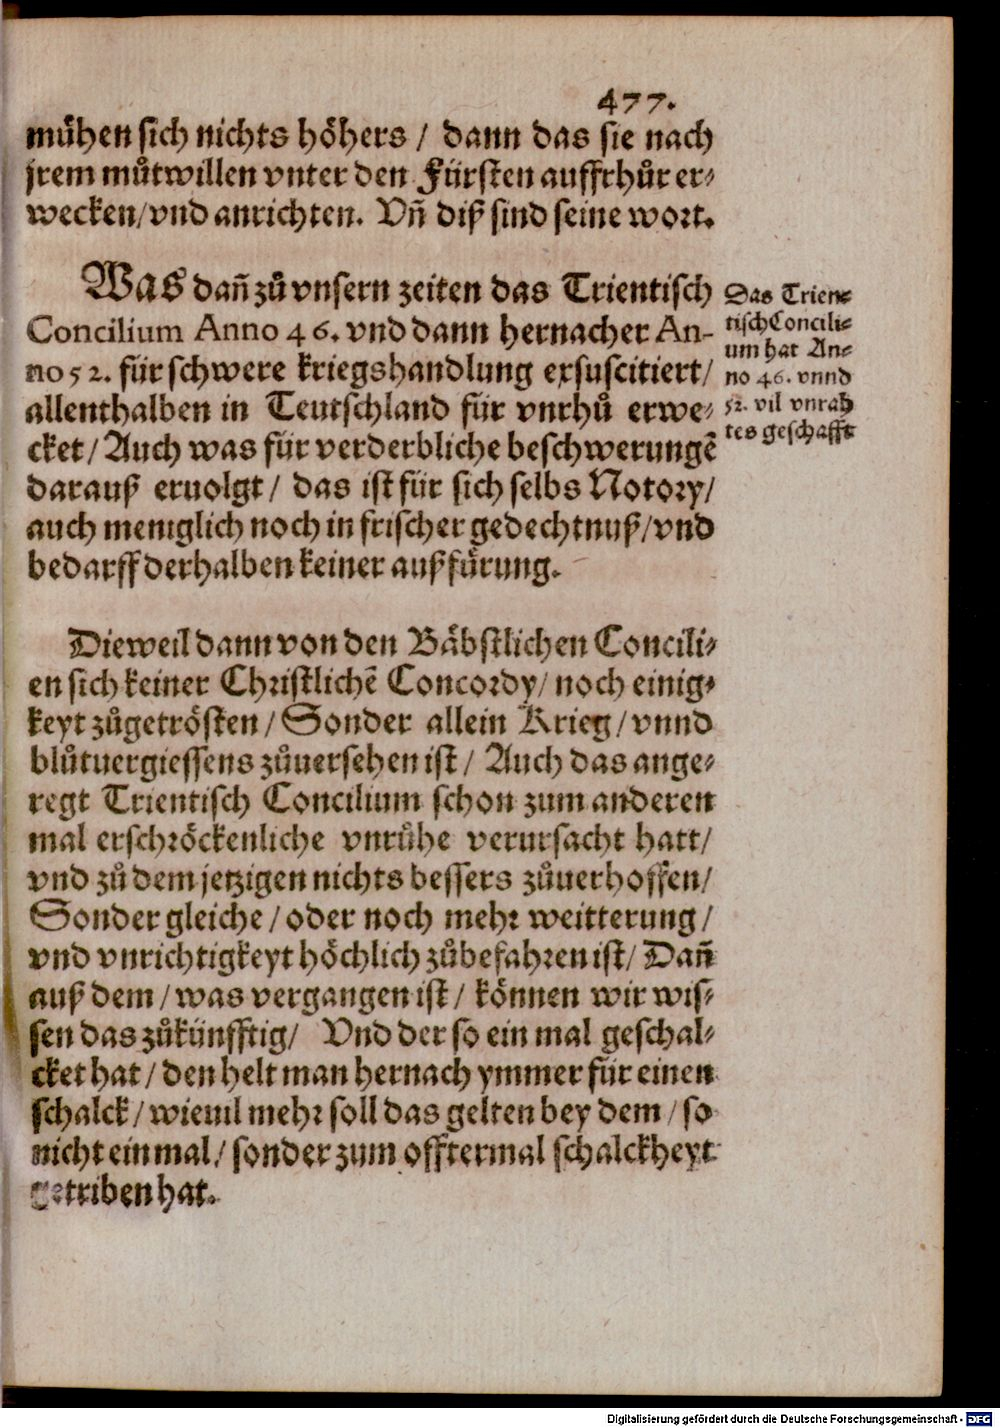 477.
mühen sich nichts höhers / dann das sie nach
jrem můtwillen vnter den Fürsten auffrhůr er⸗
wecken / vnd anrichten. Vñ diß sind seine wort.
Was dañ zů vnsern zeiten das Trientisch
Concilium Anno 46. vnd dann hernacher An-
no 52. für schwere kriegshandlung exsuscitiert /
allenthalben in Teutschland für vnrhů erwe⸗
cket / Auch was für verderbliche beschwerungē
darauß eruolgt / das ist für sich selbs Notory /
auch meniglich noch in frischer gedechtnuß / vnd
bedarff derhalben keiner außfürung.
Das Trien⸗
tisch Concili⸗
um hat An⸗
no 46. vnnd
52. vil vnrah
tes geschafft
Dieweil dann von den Bäbstlichen Concili⸗
en sich keiner Christlichē Concordy / noch einig⸗
keyt zůgetrösten / Sonder allein Krieg / vnnd
blůtuergiessens zůuersehen ist / Auch das ange⸗
regt Trientisch Concilium schon zum anderen
mal erschröckenliche vnrůhe verursacht hatt /
vnd zů dem jetzigen nichts bessers zůuerhoffen /
Sonder gleiche / oder noch mehr weitterung /
vnd vnrichtigkeyt höchlich zůbefahren ist / Dañ
auß dem / was vergangen ist / können wir wis⸗
sen das zůkünfftig / Vnd der so ein mal geschal⸗
cket hat / den helt man hernach ymmer für einen
schalck / wieuil mehr soll das gelten bey dem / so
nicht ein mal / sonder zum offtermal schalckheyt
getriben hat.
Digitalisierung gefördert durch die Deutsche Forschungsgemeinschaft - DFG